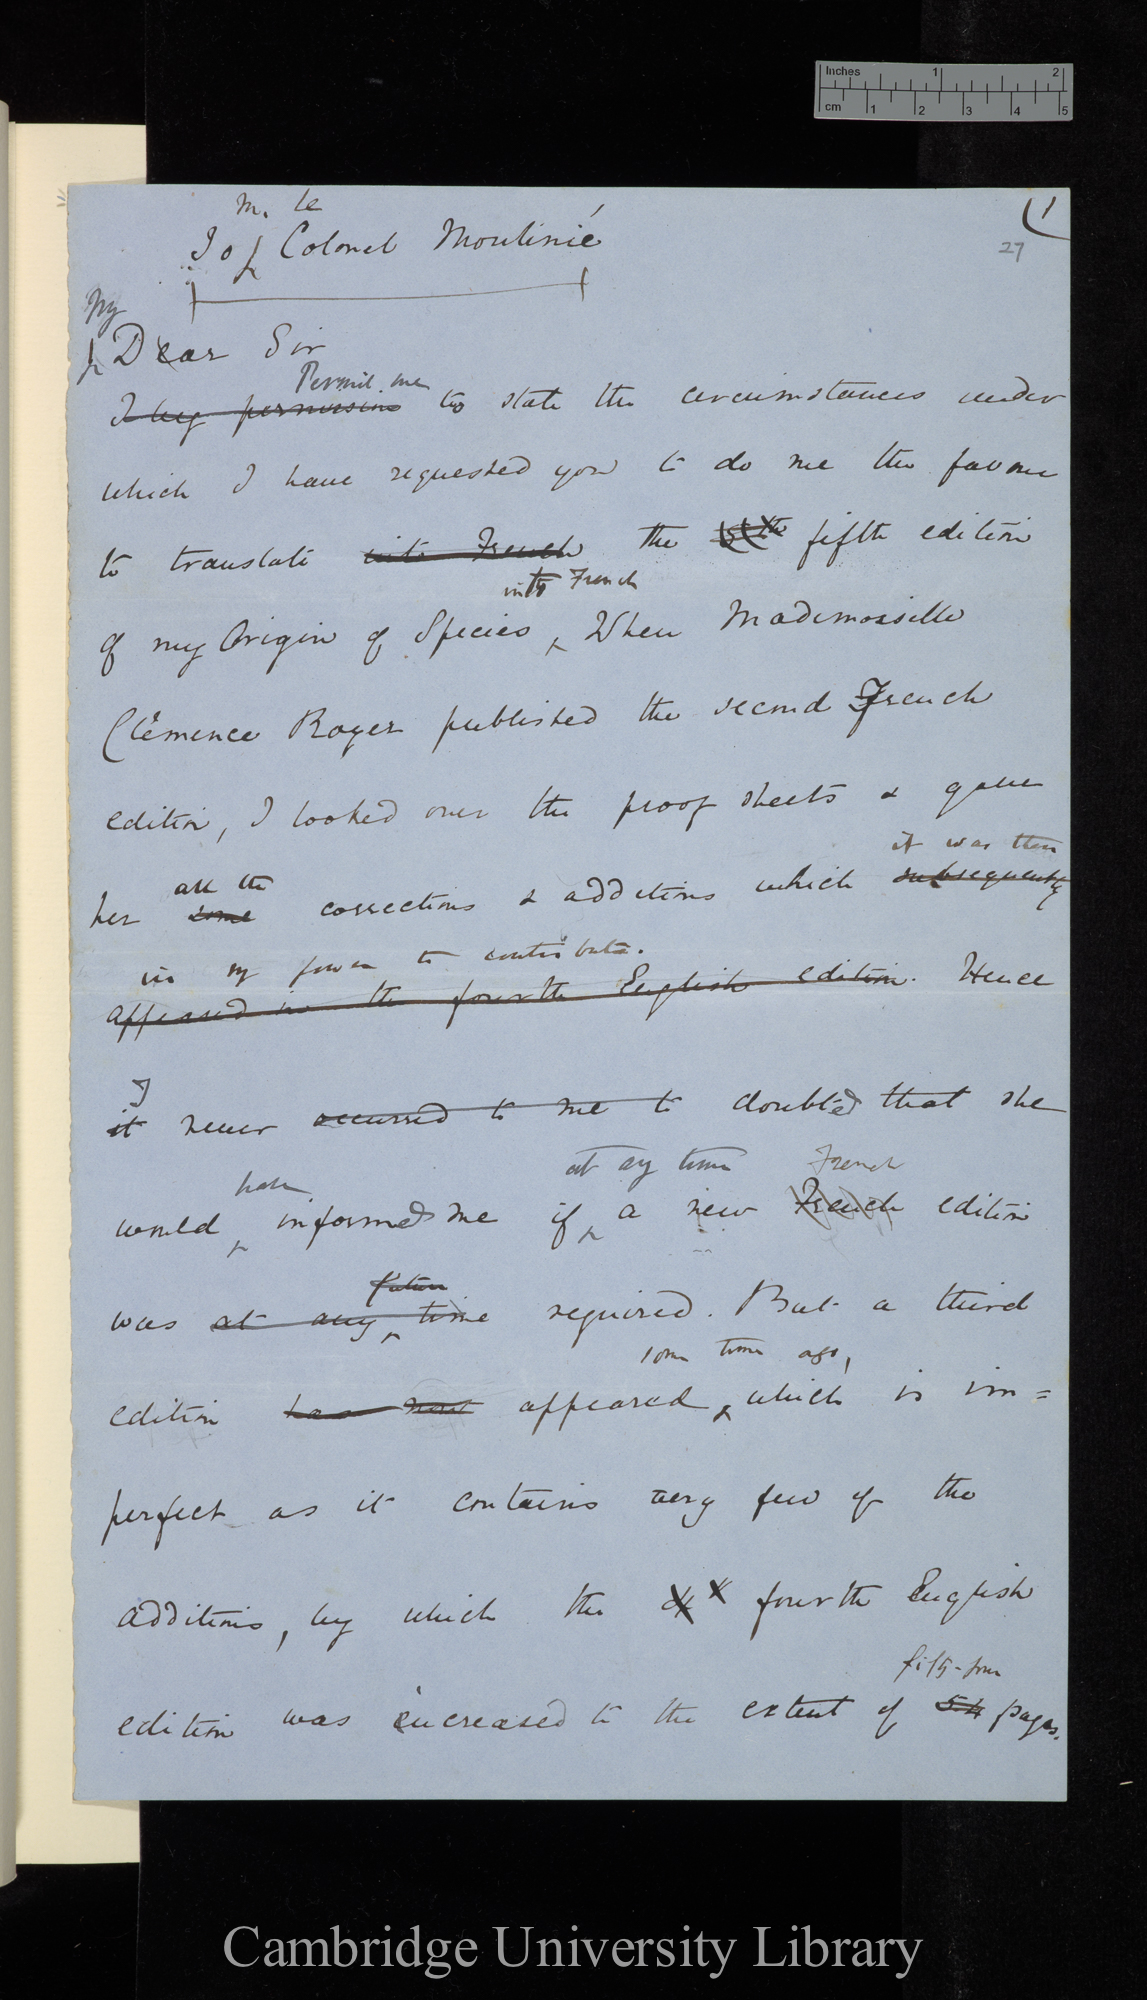 Inches 1 2
cm 1 2 3 4 5
(1
27
M. le
To Colonel Moulinié
My
Dear Sir
Permit me
I beg permission to state the circumstances under
which I have requested you to do me the favour
to translate into French the 5th fifth edition
into French
of my Origin of Species, When Mademoiselle
Clémence Royer published the second French
edition, I looked over the proof sheets & gave
it was then
all the
her some corrections & additions which subsequently
in my power to contribute.
appeared in the fourth English edition. Hence
I
it never occurred to me to doubted that she
have at any time French
would informed me if a new French edition
future
was at any time required. But a third
some time ago,
edition has now appeared, which is im=
perfect as it contains very few of the
additions, by which the 4th fourth English
fifty-four
edition was increased to the extent of 54 pages.
Cambridge University Library